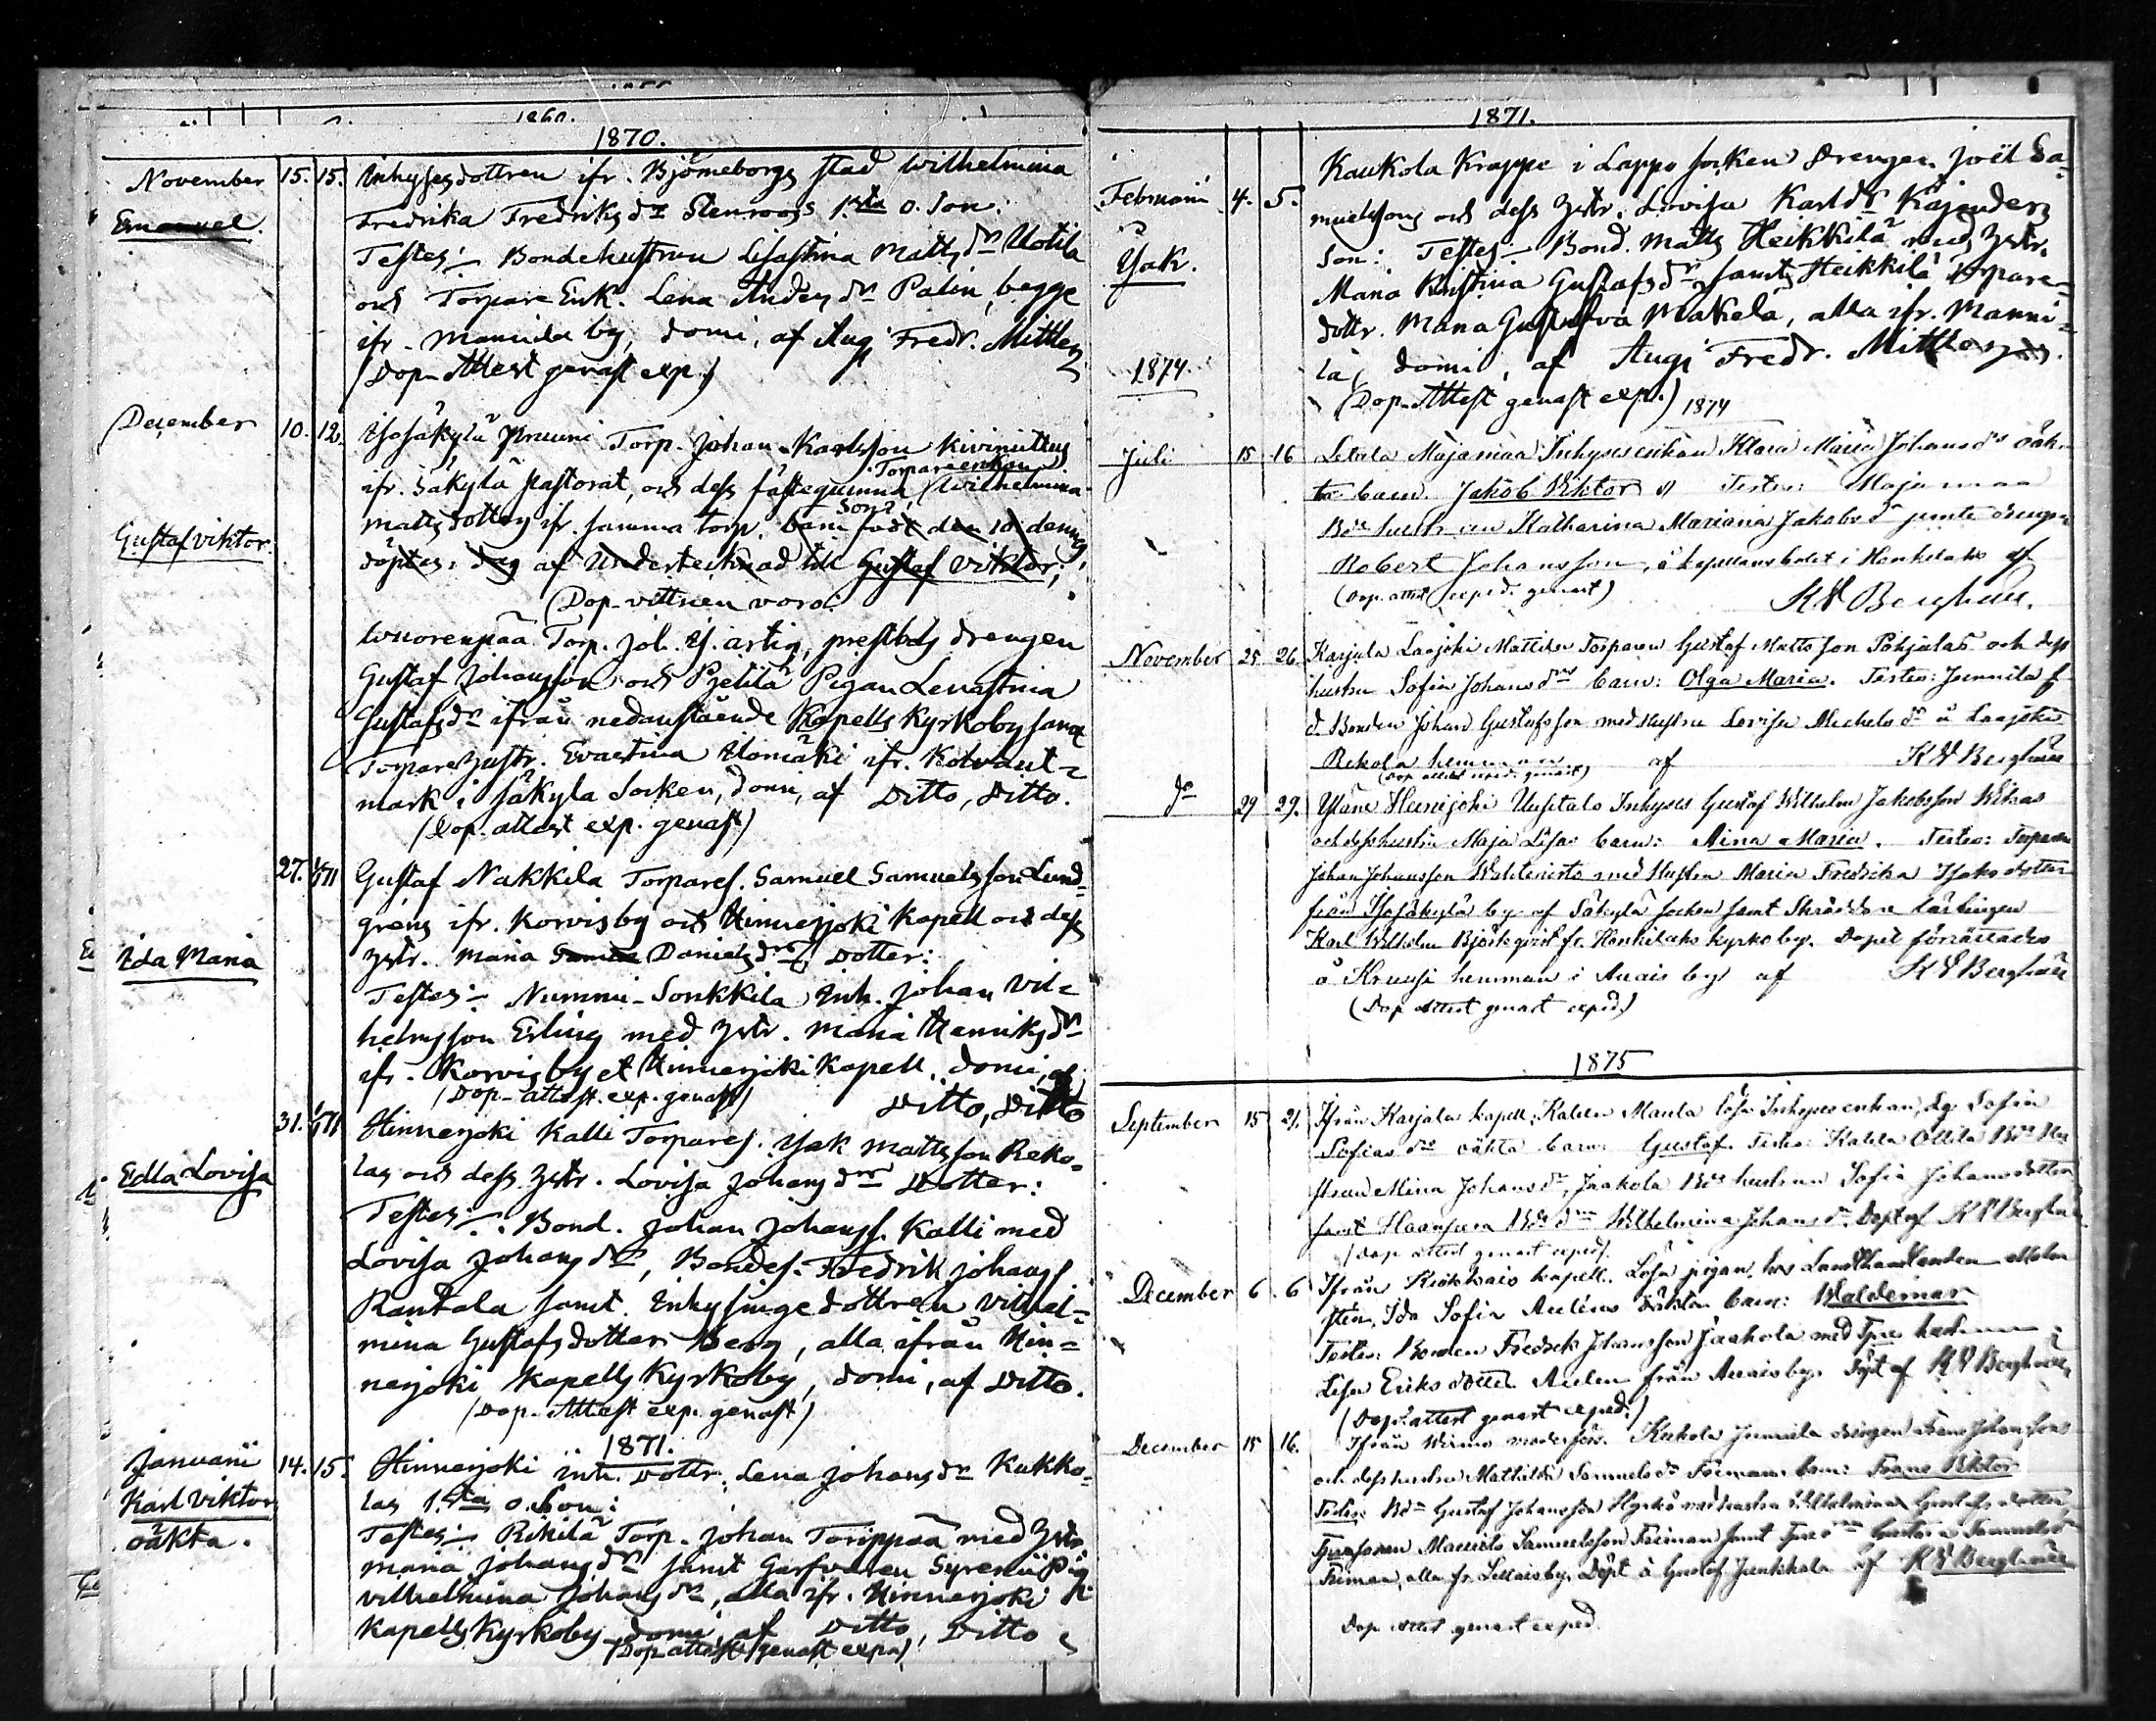 1860.
1870.
November 15. 15. Inhysesdottren ifr. Björneborgs stad Wilhelmina
Emanuel. Fredrika Fredriksdr Stenroos 1sta o. Son:
Testes:- Bondehustrun Lisastina Mattsdr Uotila
och Torpare Enk. Lena Andersdr Palin, begge
ifr. Mannila by, domi, af Aug. Fredr. Mittler
(Dop-Attest genast exp.)
December 10. 12. Isosäkylä Torp. Johan Karlsson Kiviniittus
Torpareenkan
ifr. Säkylä pastorat, och dess fästeqvinna Wilhelmina
Son:
Mattsdotters ifr. samma torp. barn född den 10 dennes
Gustaf Viktor. döptes i dag af Undertecknad till Gustaf Viktor;
Dop-vittnen voro:
Wuorenpää Torp. Joh. artig, prestbols drengen
Gustaf Johansson och Pjetilä Pigan Lenastina
Gustafsdr ifrån nedanstående Kapells Kyrkoby samt
Torpare hustr. Evastina Ilomäki ifr.
mark i Säkylä Socken, domi, af Ditto, Ditto.
(Dop-attest exp. genast)
27. 1/1 71 Gustaf Nakkila Torpares. Samuel Samuelsson Lund=
grens ifr. Korvis by och Hinnerjoki Kapell och dess
Ida Maria hstr. Maria Danielsdrs Dotter:
Testes:- Nummi-Sonkkila Inh. Johan Vil=
helmsson Erling med hstr. Maria Henriksdr
ifr. Korvis by et Hinnerjoki Kapell, domi, af
(Dop-attest. exp. genast) Ditto, Ditto
31. 1/1 71 Hinnerjoki Kalli Torpares. Isak Mattsson Reko=
Edla Lovisa las och dess hstr. Lovisa Johansdrs Dotter:
Testes:- Bond. Johan Johanss. Kalli med
Lovisa Johansdr, Bondes. Fredrik Johanss.
Rantala samt. Inhysinge dottren Vilhel=
mina Gustafsdotter Berg, alla ifrån Hin=
nerjoki Kapells Kyrkoby, domi, af Ditto.
(Dop-Attest exp. genast)
1871.
Januarii 14. 15. Hinnerjoki inh. dottr. Lena Johansdr Kukko=
Karl Viktor las 1.sta o. Son:
oäkta. Testes:- Rikilä Torp. Johan Torippää med hstr.
Maria Johansdr samt Garfvaren Syrenii Pig
Vilhelmina Johansdr, alla ifr. Hinnerjoki
Kapells Kyrkoby domi, af Ditto, Ditto
(Dop-attest genast exp.)
1871.
Kaukola Krappe i Lappo Socken drengen Joël Sa=
Februarii 4. 5. muelssons och dess hstr. Lovisa Karldr Kajanders
Isak. Son: Testes:- Bond. Matts Heikkilä med hstr.
Maria Kristina Gustafsdr samt Heikkilä Torpare=
dottr. Maria Gustafva Mäkelä, alla ifr. Manni=
1874. la, domi, af Aug. Fredr. Mittler
(Dop-Attest genast exp.)
1874
Juli 15 16 Letala Majamaa Inhysesenkan Klara Maria Johansdrs oäk=
ta barn Jakob Viktor Testes: Majamaa
Bde hustrun Katharina Mariana Jakobsdr jemte drengen
Robert Johansson, å kapellansbolet i Honkilaks af
(Dop. attest exped. genast) K V Berghäll.
November 25 26. Karjala Laajoki Mattilan Torparen Gustaf Mattsson Pohjalas och dess
hustru Sofia Johansdrs barn: Olga Maria. Testes: Junnila f
d. Bonden Johan Gustafsson med hustru Lovisa Michelsdr å Laajoki
Rekola hemman af K V Berghäll
(Dop attest exped. genast)
do 29 29. Yläne Heinijoki Uusitalo Inhyses Gustaf Wilhelm Jakobsson
och dess hustru Maja Lisas barn: Aina Maria. Testes: Torparen
Johan Johansson med hustru Maria Fredrika Isaks dotter
från Isosäkylä by af Säkylä socken samt Skräddare lärlingen
Karl Wilhelm Björkqvist fr. Honkilaks kyrkoby. Dopet förrättades
å Kruusi hemman i Auvais by af K V Berghäll
(Dop attest genast exped)
1875
September 15 21. Ifrån Karjala kapell, Kalela Maula lösa Inhysesenkan Sofia
Sofiasdrs oäkta barn: Gustaf. Testes: Kalela Ollila Bde Hu
strun Mina Johansdr, Jaakola Bde hustrun Sofia Johansdotter
samt Haanpera Wilhelmina Johansdr. Döpt af K V Berghäll
(Dop attest genast exped.)
December 6. 6 Ifrån Kiukais kapell. Lösa pigan, hos Landthandlanden
Ida Sofia Aulins oäkta barn: Waldemar
Testes: Bonden Fredrik Johansson Jaakola med
Lisa Eriks dotter Aulin från Auvais by. Döpt af K V Berghäll
(Dop attest genast exped.)
December 15 16. Ifrån Wirmo moderförs. Kukola Junnila drengen Frans Johanssons
och dess hustru Mathilda Samuelsdr Frimans barn: Frans Viktor
Testes: Bdn Gustaf Johansson med hustru Wilhelmina Gustafs dotter
Torparen Samuelsson Friman samt Gustava Samuelsdr
Friman, alla fr. by. Döpt å Gustaf Junkkala af K V Berghäll
Dop attest genast exped.